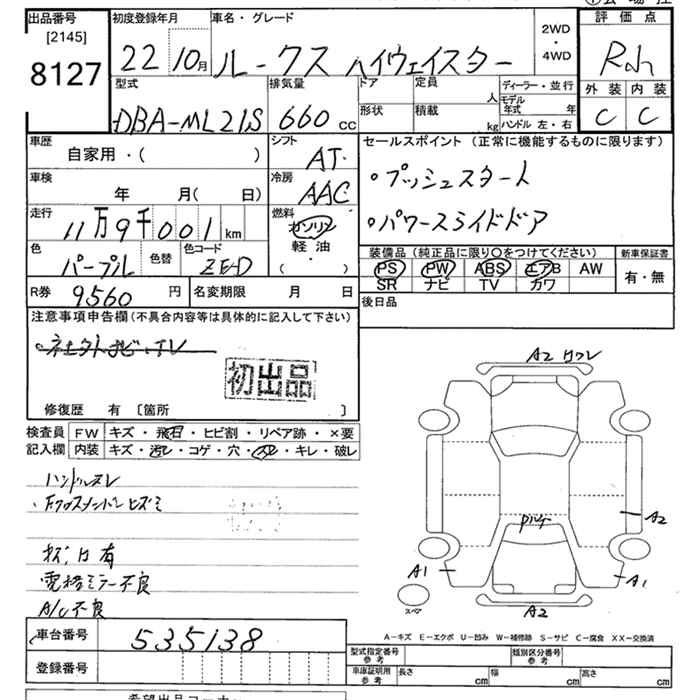 出品番号
[2145]
8127
初度登録年月
22 10月
車名・グレード
ルークス ハイウェイスター
2WD
・
4WD
評価点
外装 内装
C C
型式
DBA-ML21S
排気量
660 cc
ドア
形状
定員
人
積載
kg
ディーラー・並行
モデル年式 年
ハンドル 左・右
車歴
自家用・( )
シフト
AT
車検
年 月( 日)
冷房
AAC
走行
11万9千001 km
燃料
ガソリン
軽油
( )
色
パープル
色替
色コード
ZE-D
R券
9560 円
名変期限 月 日
セールスポイント (正常に機能するものに限ります)
・プッシュスタート
・パワースライドドア
装備品 (純正品に限り〇をつけてください)
PS PW ABS エアB AW
SR ナビ TV カワ
新車保証書
有・無
後日品
注意事項申告欄(不具合内容等は具体的に記入して下さい)
初出品
修復歴 有 〔箇所 〕
検査員
記入欄
FW キズ・飛石・ヒビ割・リペア跡・×要
内装 キズ・汚レ・コゲ・穴・スレ・キレ・破レ
ハンドルスレ
電格ミラー不良
A/C不良
A2 ワレ
A2
A1
A1
スペア
A2
A-キズ E-エクボ U-凹み W-補修跡 S-サビ C-腐食 XX-交換済
車台番号
535138
登録番号
型式指定番号
参考
類別区分番号
参考
車庫証明用
参考
長さ cm
幅 cm
高さ cm